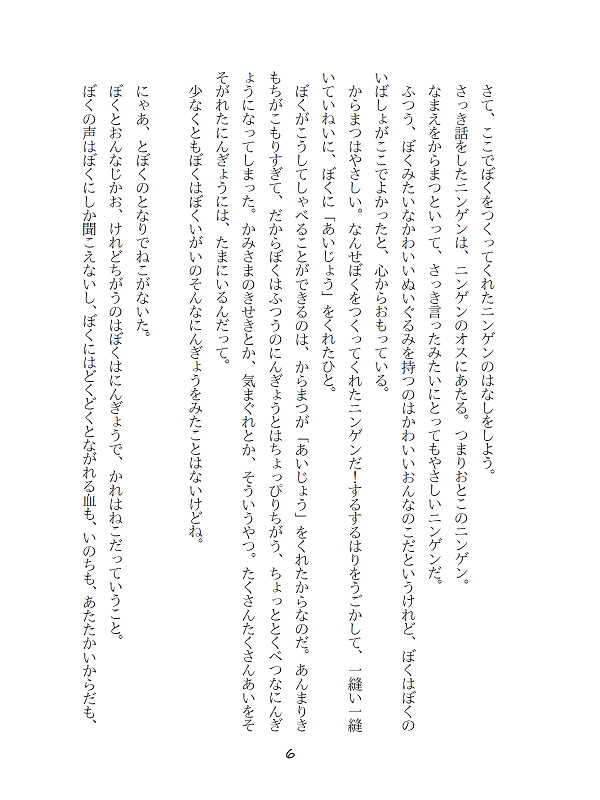 さて、ここでぼくをつくってくれたニンゲンのはなしをしよう。
さっき話をしたニンゲンは、ニンゲンのオスにあたる。つまりおとこのニンゲン。
なまえをからまつといって、さっき言ったみたいにとってもやさしいニンゲンだ。
ふつう、ぼくみたいなかわいいぬいぐるみを持つのはかわいいおんなのこだというけれど、ぼくはぼくの
いばしょがここでよかったと、心からおもっている。
からまつはやさしい。なんせぼくをつくってくれたニンゲンだ！するするはりをうごかして、一縫い一縫
いていねいに、ぼくに「あいじょう」をくれたひと。
ぼくがこうしてしゃべることができるのは、からまつが「あいじょう」をくれたからなのだ。あんまりき
もちがこもりすぎて、だからぼくはふつうのにんぎょうとはちょっぴりちがう、ちょっととくべつなにんぎ
ょうになってしまった。かみさまのきせきとか、気まぐれとか、そういうやつ。たくさんたくさんあいをそ
そがれたにんぎょうには、たまにいるんだって。
少なくともぼくはぼくいがいのそんなにんぎょうをみたことはないけどね。
にゃあ、とぼくのとなりでねこがないた。
ぼくとおんなじかお、けれどちがうのはぼくはにんぎょうで、かれはねこだっていうこと。
ぼくの声はぼくにしか聞こえないし、ぼくにはどくどくとながれる血も、いのちも、あたたかいからだも、
6